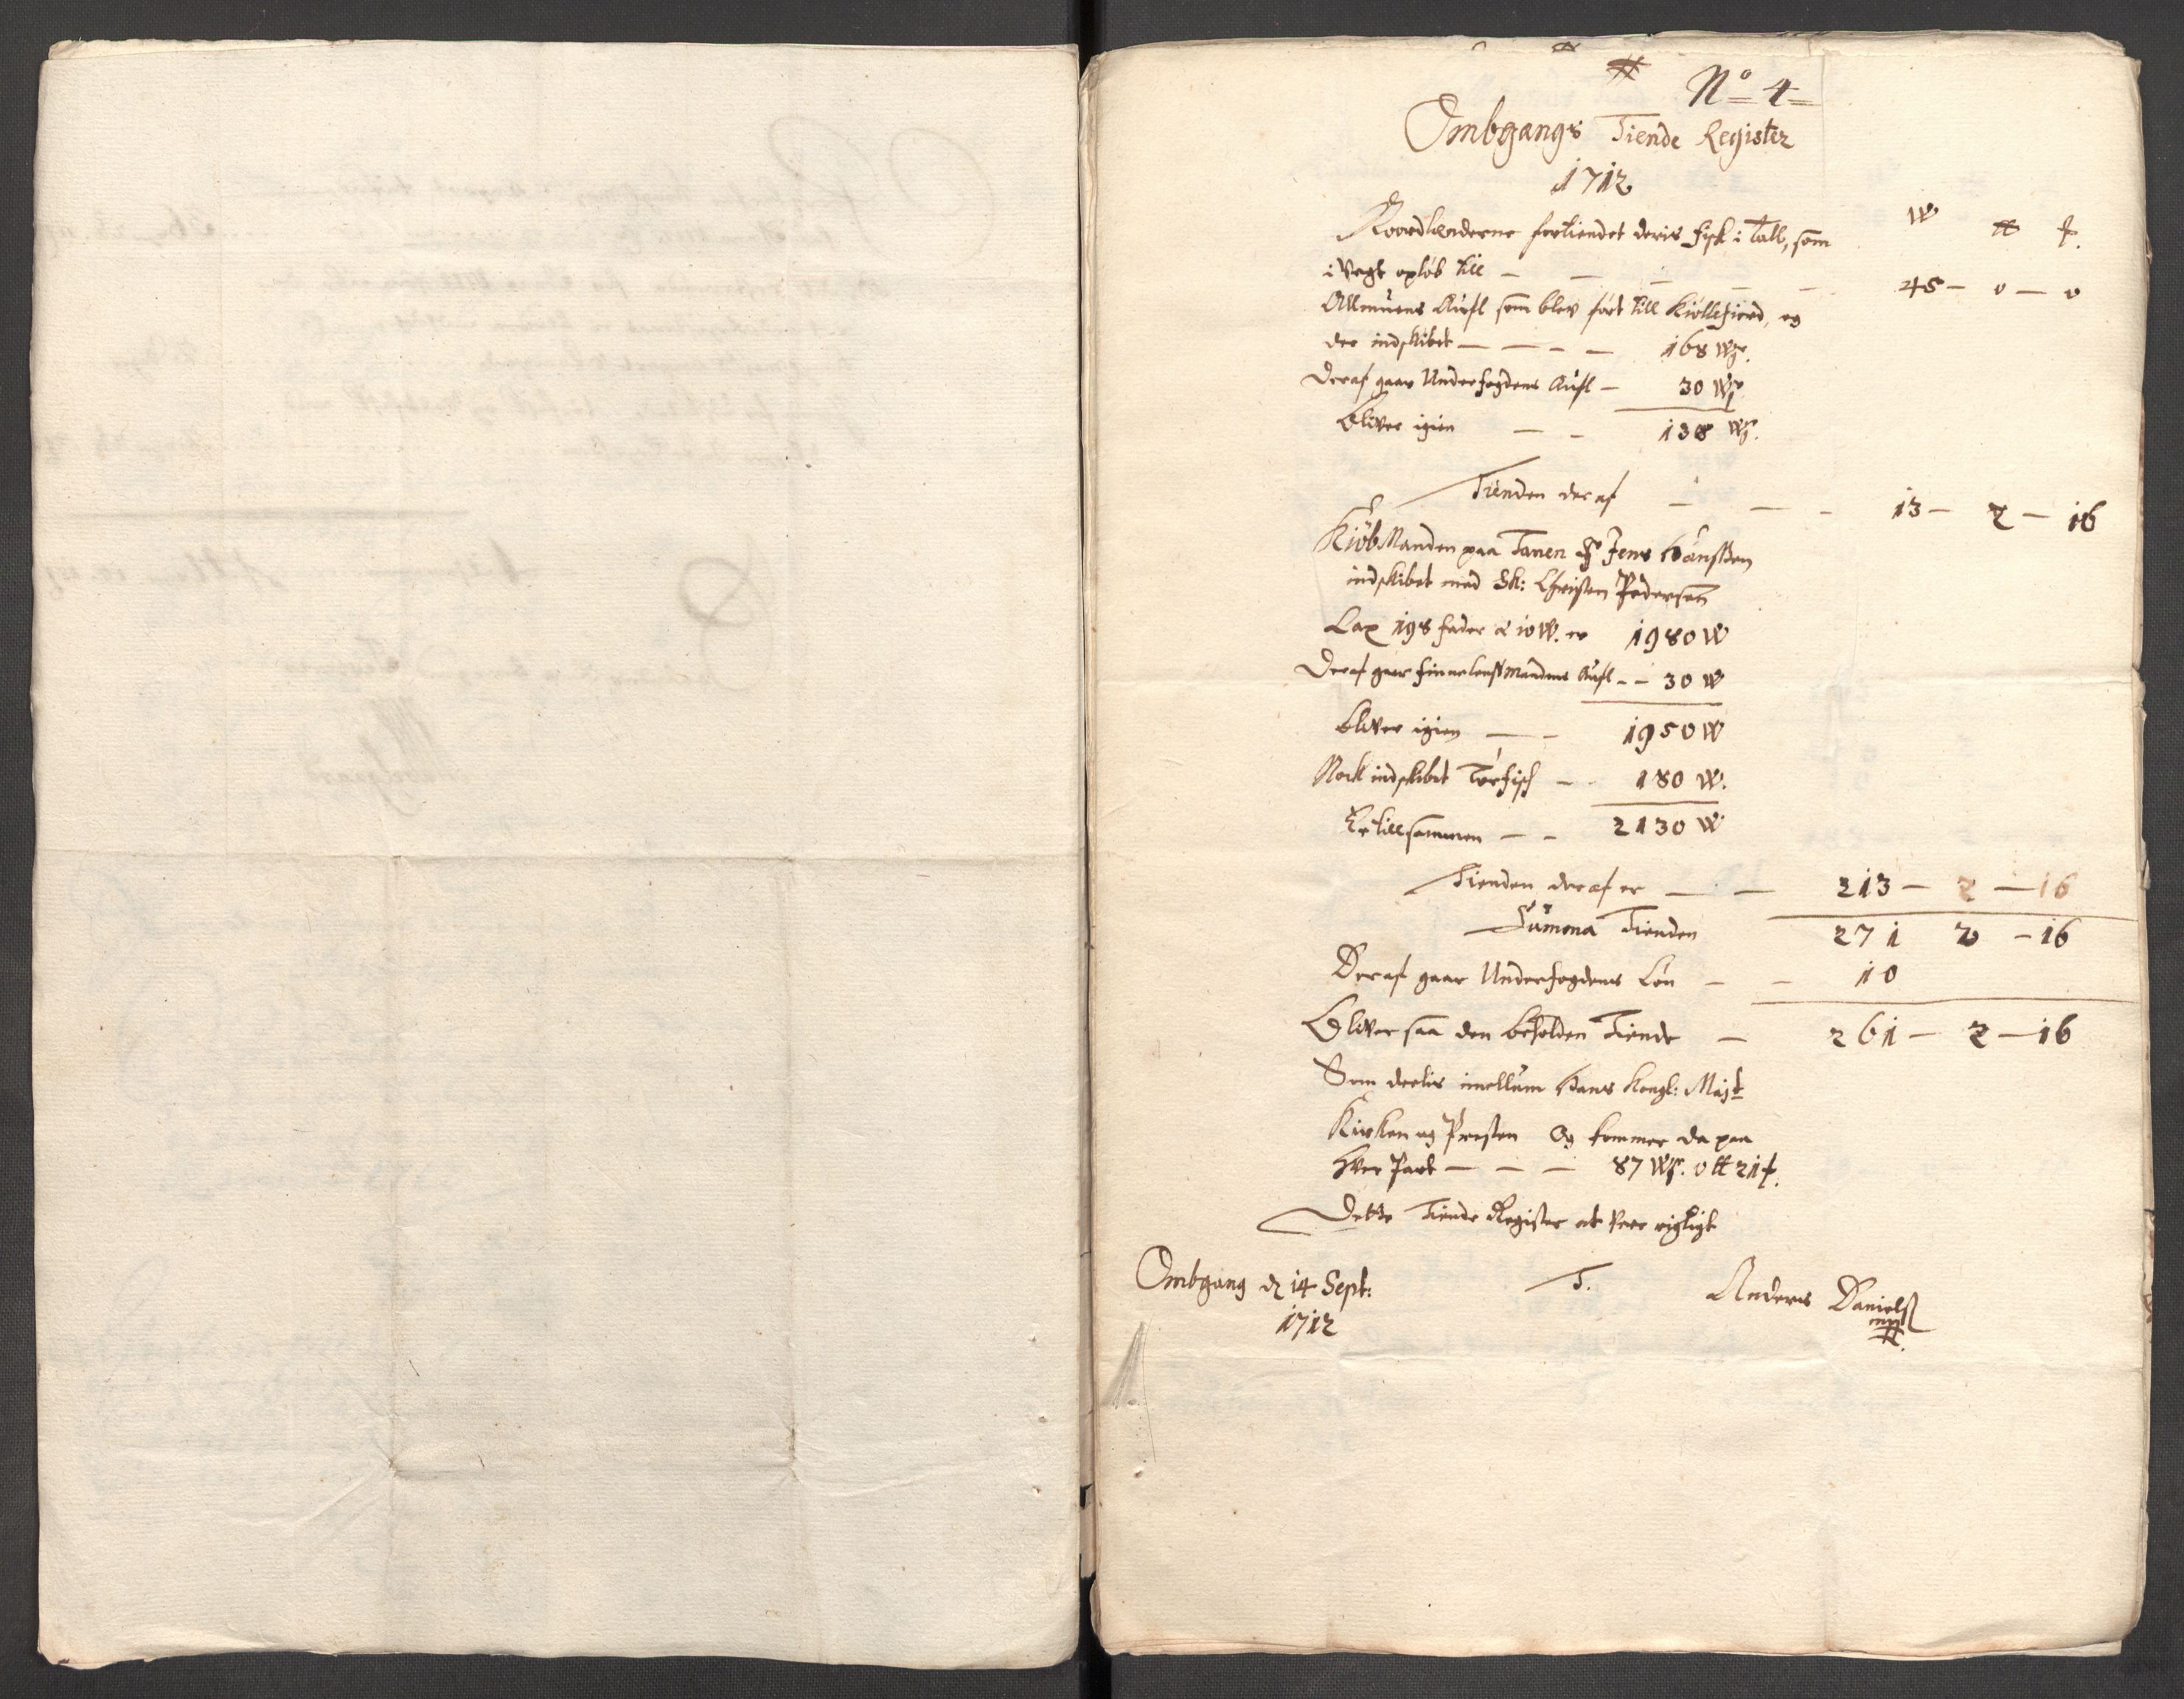 No 4
Ombgangs Tiende Register
1712
W ℔ ꝑ.
Noordlænderne fortiendet deris fisk i Tall, som
i Vegt opløb till — — — — — 45 — 0 — 0
Allmuens Aufl som blev ført till Kiøllefiord, og
der indskibet — — — — 168 W.
Deraf gaar Underfogdens Aufl — 30 W
Bliver igien — — 138 W.
Tienden der af — — — 13 — 2 — 16
KiøbManden paa Tanen Sr Jens Hanssen
indskibet med Sk: Christen Pedersen
Lax 198 fader a 10 W. er 1980 W
Deraf gaar finnelensmandens Aufl — — 30 W
bliver igien — — 1950 W
Nock indskibet Tørfisk — — 180 W.
Er tillsammen — — 2130 W
Tienden der af er — — 213 — 2 — 16
Summa Tienden 271 2 — 16
Deraf gaar Underfogdens Løn — — 10
Bliver saa den beholden Tiende — 261 — 2 — 16
Som deelis imellum Hans Kongl: Majt
Kirken og Presten Og kommer da paa
hver Part — — — 87 W. 0 ℔ 21 ꝑ.
Dette Tiende Register at vere rigtigt
Ombgang d 14 Sept: T. Anders Daniels
1712 mp